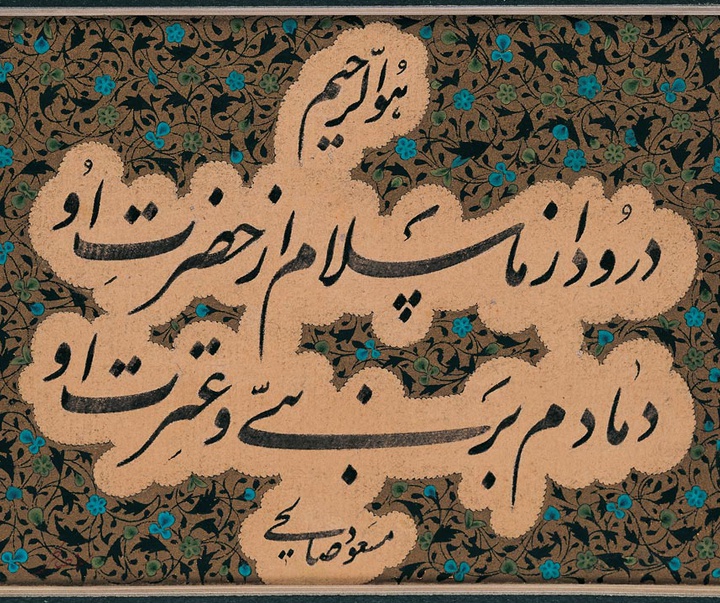 هُوَ الرحیم
درُود از ما سلام از حضرتِ اُو
دمادم بر نبیّ و عترت او
مسعود صالحی